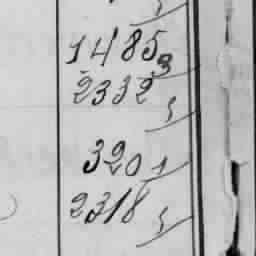 1485
2332
3201
2318